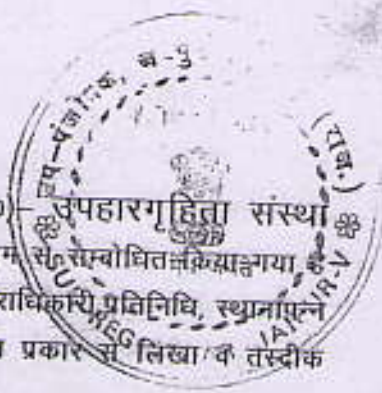 उप-पंजीयक, ज-पु
(राज.)
उपहारगृहिता संस्था
सम्बोधित किया गया
प्रतिनिधि, स्थानापन्न
प्रकार से लिखा व तस्दीक
SUB-REG
JAIPUR-V